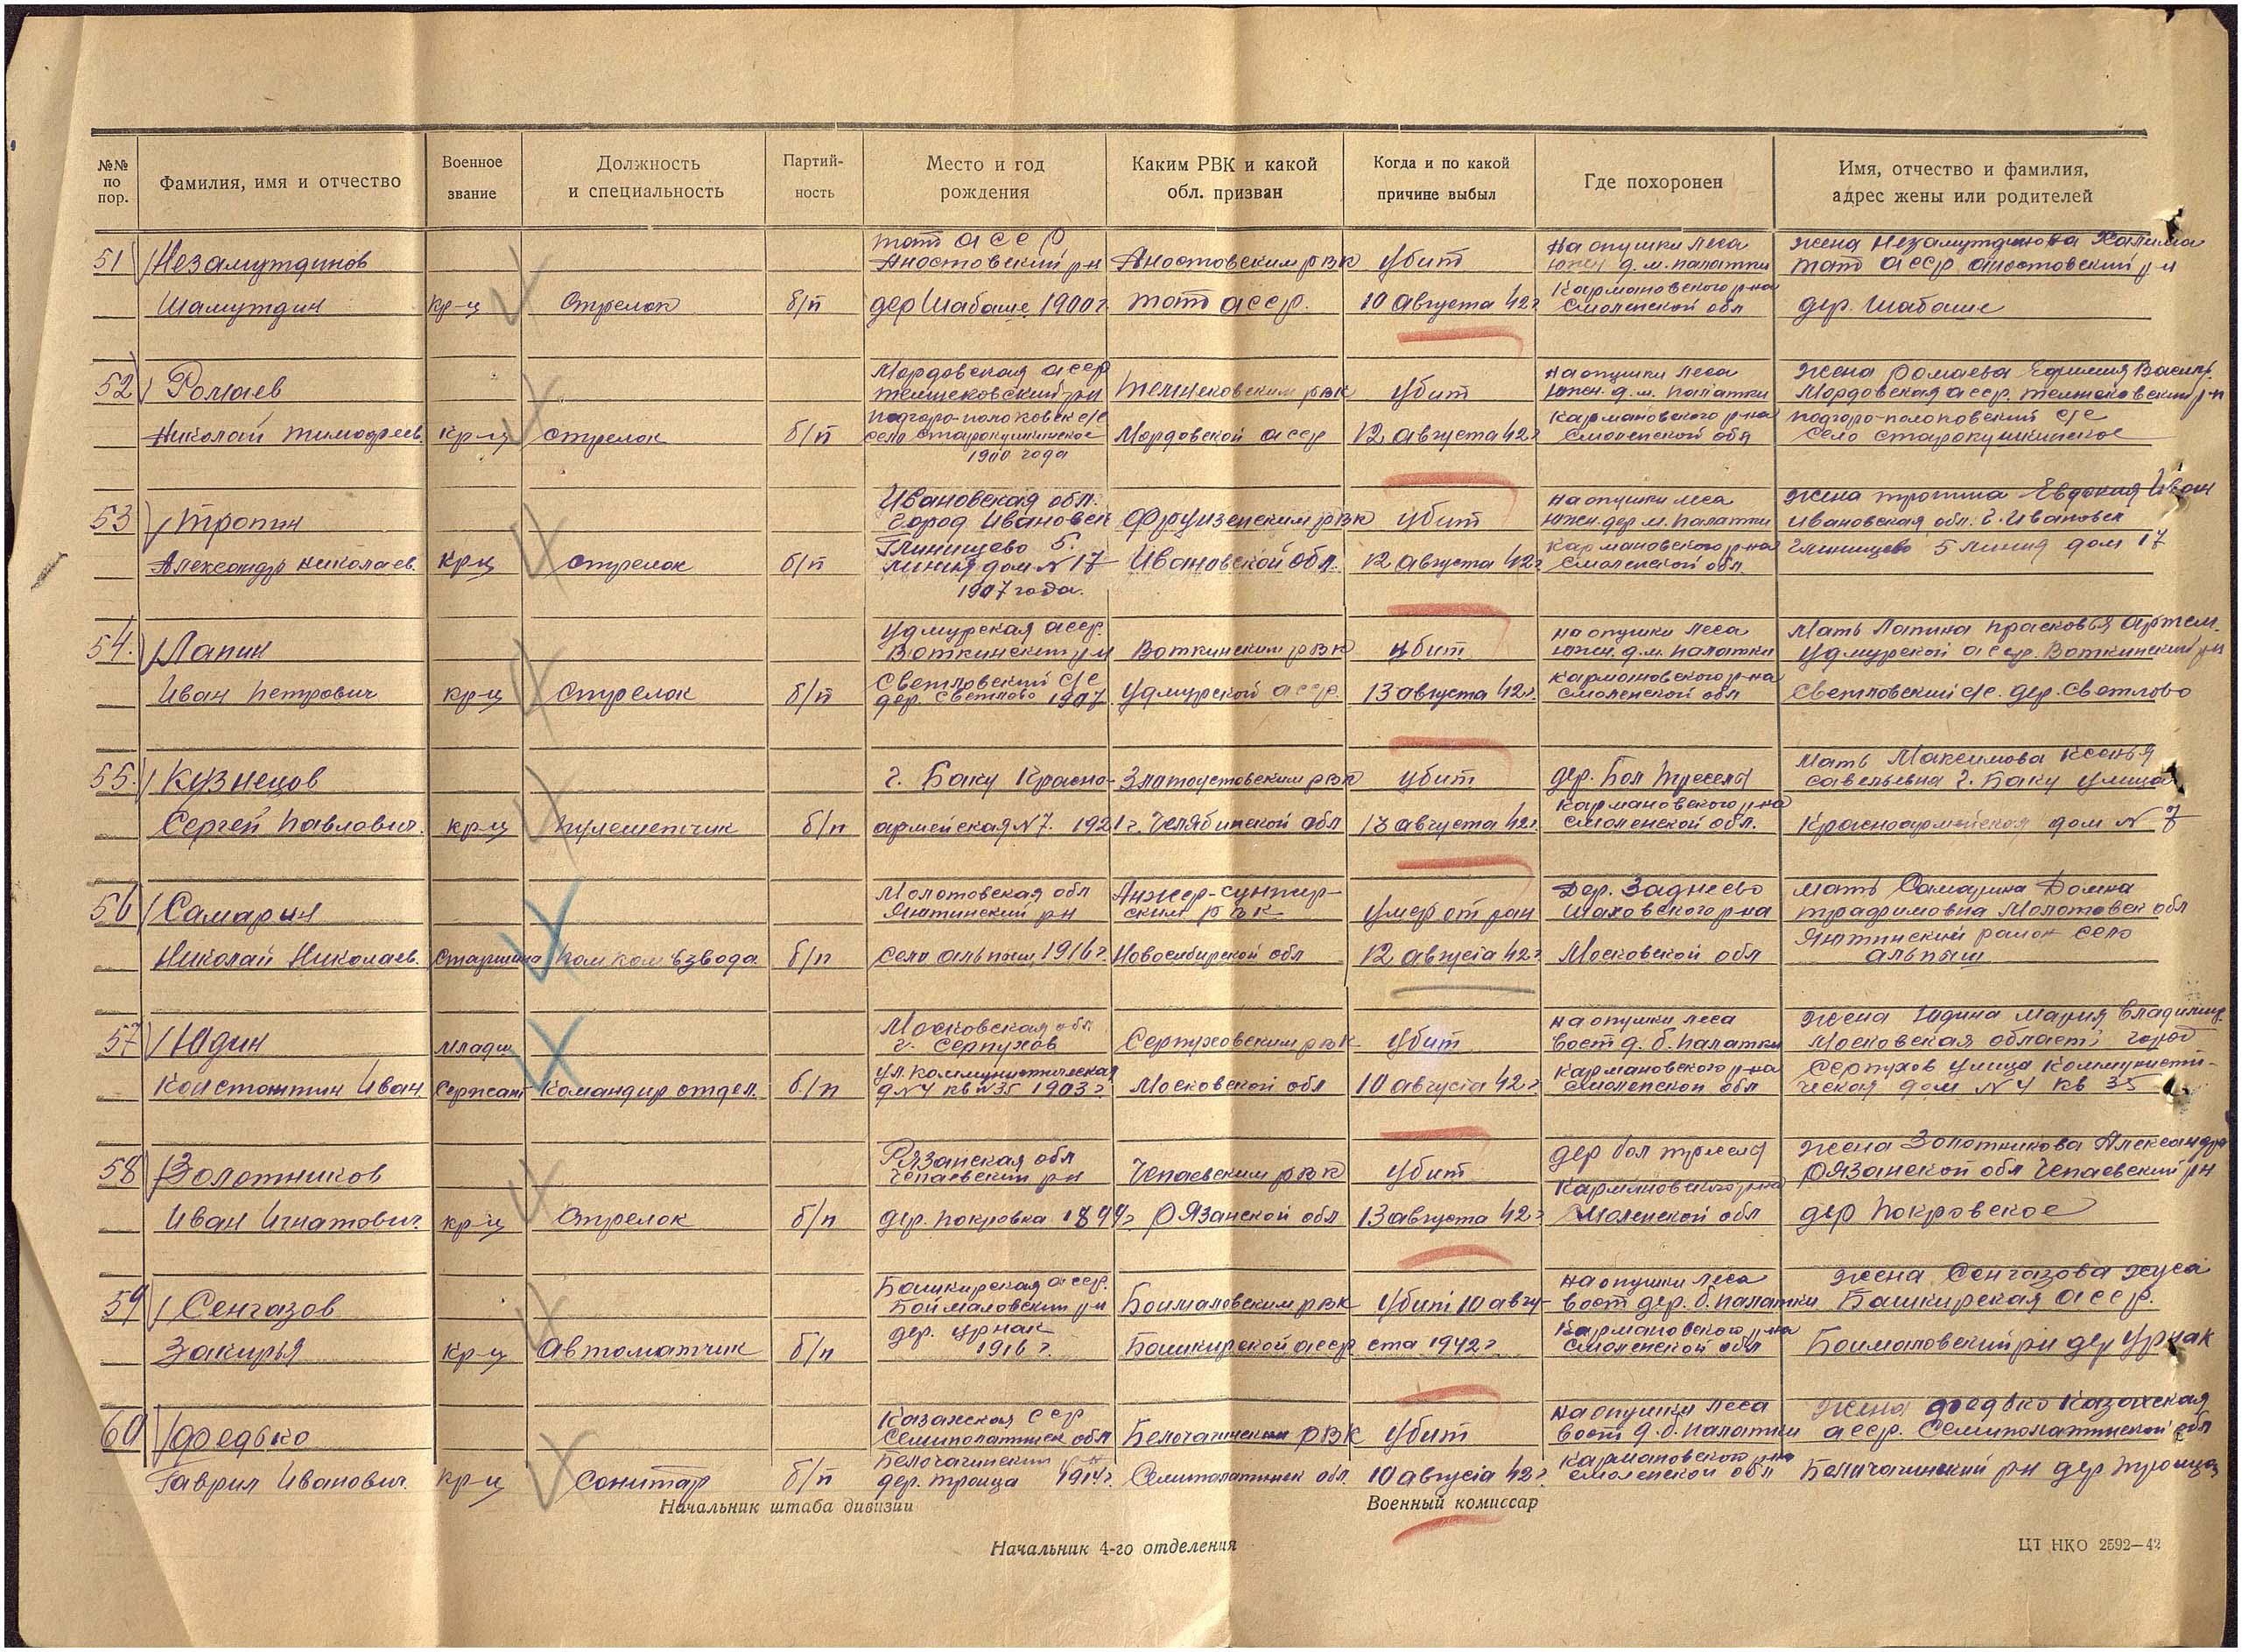 №№ по пор.
Фамилия, имя и отчество
Военное звание
Должность и специальность
Партийность
Место и год рождения
Каким РВК и какой обл. призван
Когда и по какой причине выбыл
Где похоронен
Имя, отчество и фамилия, адрес жены или родителей
51 Незамутдинов
Шамутдин
кр-ц
Стрелок
б/п
тат асср
дер Шабаше 1900 г.
тат асср.
убит
10 августа 42 г
на опушки леса
южн д. м. палатки
Кармановского р-на
Смоленской обл
жена Незамутдинова Халима
дер. Шабаше
52 Ромаев
Николай Тимофеев.
кр-ц
стрелок
б/п
Мордовская асср
село старокушкинское
1900 года
Мордовской асср
убит
12 августа 42 г
на опушки леса
южн. д. м. палатки
Кармановского р-на
Смоленской обл
жена Ромаева
село старокушкинское
53 Тропин
Александр Николаев.
кр-ц
стрелок
б/п
Ивановская обл.
Глинищево 5.
линия дом № 17
1907 года.
Фрунзенским рвк
Ивановской обл.
убит
12 августа 42 г
на опушки леса
южн. дер м. палатки
Кармановского р-на
Смоленской обл.
жена Тропина Евдокия Иван
Глинищево 5 линия дом 17
54. Лапин
Иван Петрович
кр-ц
Стрелок
б/п
Удмурская асср.
Воткинский рн
Светловский с/с
дер. Светлово 1907
Воткинским рвк
Удмурской асср.
убит
13 августа 42 г.
на опушки леса
южн. д. м. палатки
Кармановского р-на
Смоленской обл
Мать Лапина Прасковья Артем.
Удмурской асср. Воткинский рн
Светловский с/с. дер. Светлово
55. Кузнецов
Сергей Павлович.
кр-ц
б/п
г. Баку Красно-
армейская № 7. 1921 г.
Златоустовским рвк
Челябинской обл
убит
13 августа 42 г.
Кармановского р-на
Смоленской обл.
Мать Максимова Ксенья
Савельевна г. Баку улица
Красноармейская дом № 7
56 Самарин
Николай Николаев.
Старшина
Пом ком взвода
б/п
Молотовская обл
1916 г.
Анжер-сунжер-
ским рвк
Новосибирской обл
умер от ран
12 августа 42 г
Шаховского р-на
Московской обл
Мать Самарина Домна
57 Юдин
Константин Иван
Младш
Сержант
Командир отдел.
б/п
Московская обл
г. Серпухов
ул. Коммунистическая
д № 4 кв № 35 1903 г
Серпуховским рвк
Московской обл
убит
10 августа 42 г.
на опушки леса
вост д. б. палатки
Кармановского р-на
Смоленской обл
жена Юдина Мария Владимир.
Московская область город
Серпухов улица Коммунисти-
ческая дом № 4 кв 35
58 Золотников
Иван Игнатович.
кр-ц
Стрелок
б/п
Рязанская обл
Чепаевский рн
дер. Покровка
Чепаевским рвк
Рязанской обл
убит
13 августа 42 г
Кармановского р-на
Смоленской обл
жена Золотникова Александра
Рязанской обл Чепаевский рн
дер Покровское
59 Сенгазов
Закирья
кр-ц
Автоматчик
б/п
Башкирская асср.
Боймаловский рн
дер. Урнак
1916 г.
Боималовским рвк
Башкирской асср
убит 10 авгу-
ста 1942 г
на опушки леса
вост дер. б. палатки
Кармановского р-на
Смоленской обл
жена Сенгазова
Башкирская асср.
Боималовский рн дер Урнак
60 Федько
Гаврил Иванович.
кр-ц
Санитар
б/п
Казахская сср
Семиполатинск обл
дер. Троица 1914 г.
Семипалатинск обл.
убит
10 августа 42 г.
на опушки леса
вост д. б. палатки
Кармановского р-на
Смоленской обл
жена Федько Казахская
асср. Семиполатинской обл
Начальник штаба дивизии
Военный комиссар
Начальник 4-го отделения
ЦТ НКО 2592—42